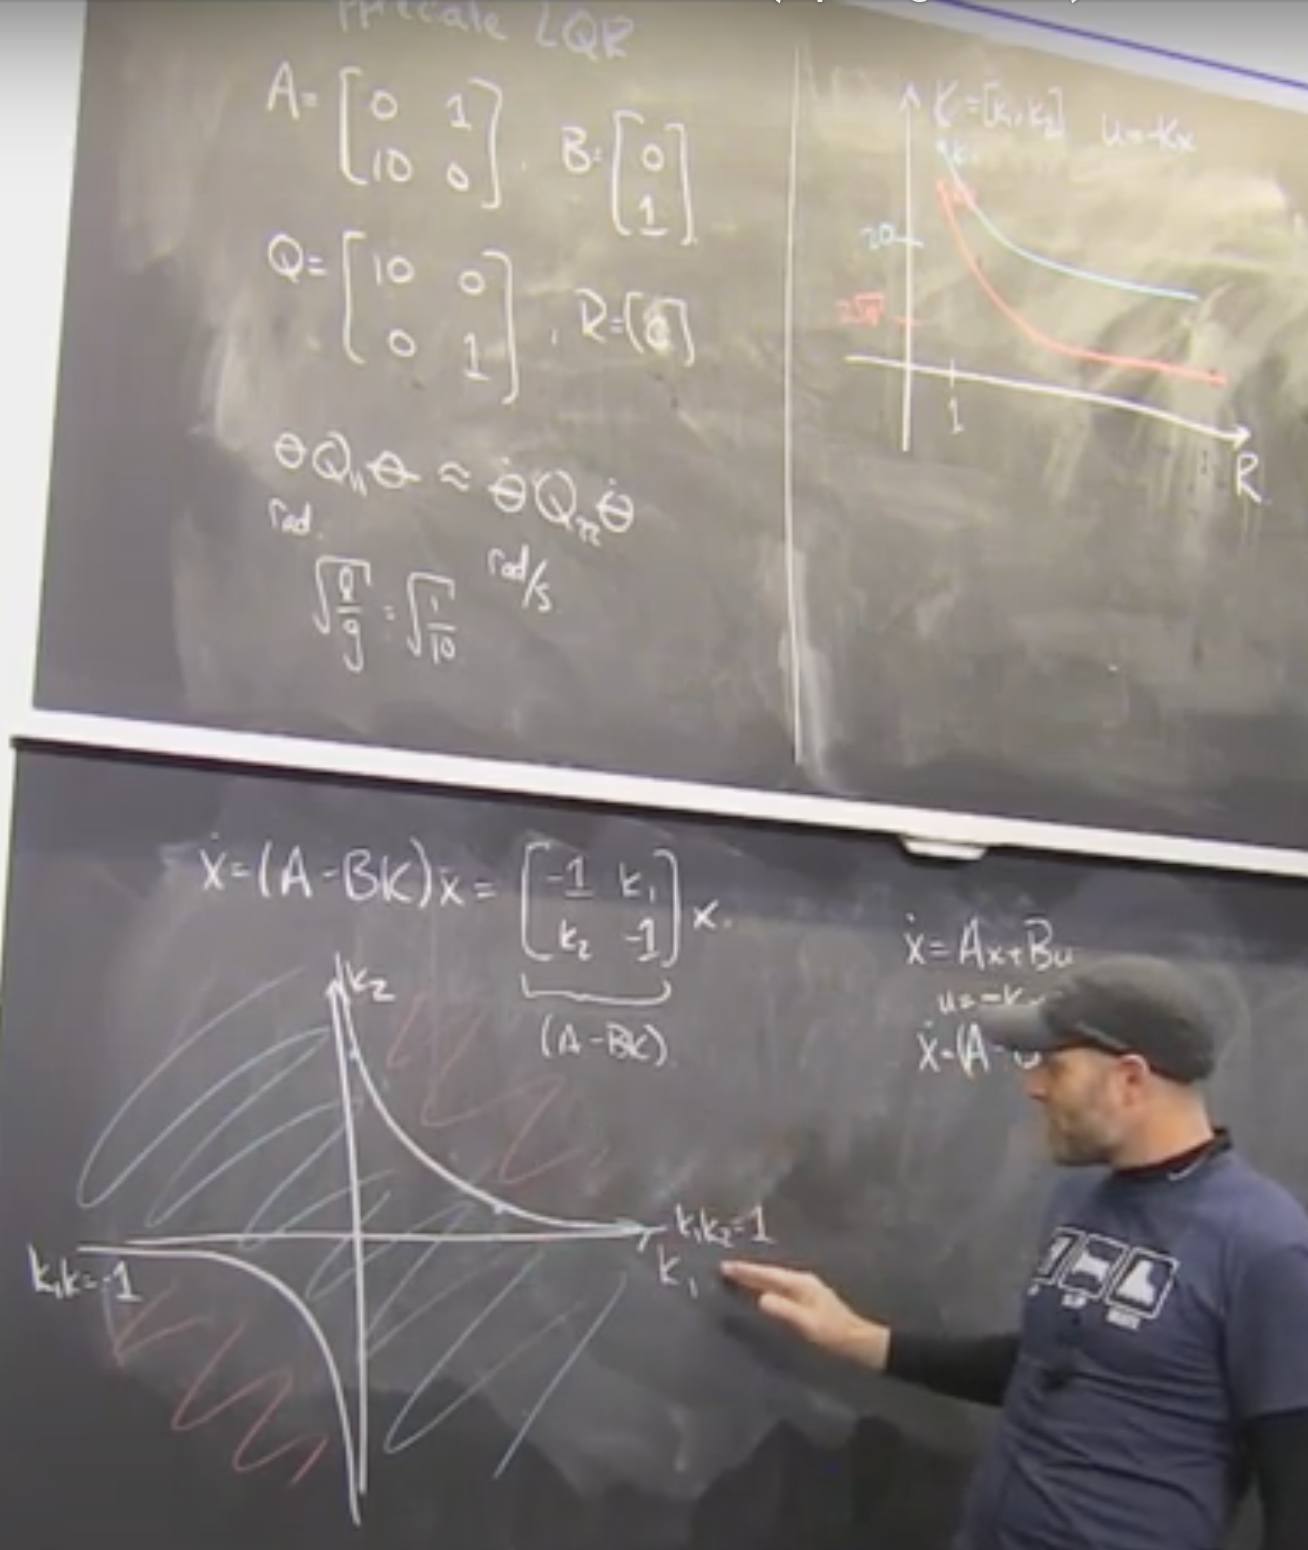 LQR
A= [0 1
10 0], B= [0
1]
Q= [10 0
0 1], R=[ ]
θQ₁₁θ ≈ θ̇Q₂₂θ̇
rad. rad/s
√(l/g) = √(1/10)
K=[k₁,k₂] u=-Kx
k₁
20
2√10
1
R
ẋ=(A-BK)x = [-1 k₁
k₂ -1] x.
(A-BK)
ẋ=Ax+Bu
u=-K
ẋ=(A-
k₂
k₁k₂=1
k₁
k₁k=-1